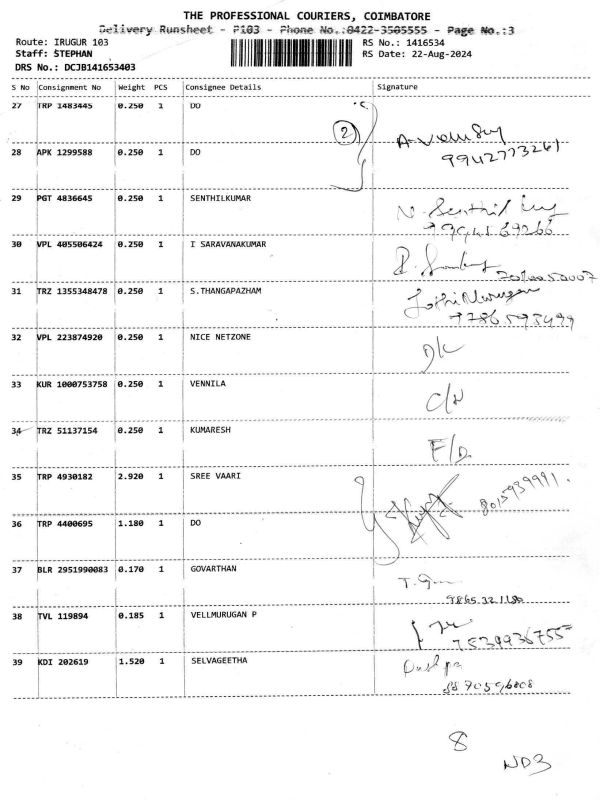 THE PROFESSIONAL COURIERS, COIMBATORE
Delivery Runsheet - P103 - Phone No.:0422-3505555 - Page No.:3
Route: IRUGUR 103
RS No.: 1416534
Staff: STEPHAN
RS Date: 22-Aug-2024
DRS No.: DCJB141653403
S No Consignment No Weight PCS Consignee Details Signature
27 TRP 1483445 0.250 1 DO
2
28 APK 1299588 0.250 1 DO
9942773261
29 PGT 4836645 0.250 1 SENTHILKUMAR
N. Senthil
30 VPL 405506424 0.250 1 I SARAVANAKUMAR
31 TRZ 1355348478 0.250 1 S.THANGAPAZHAM
32 VPL 223874920 0.250 1 NICE NETZONE
D/L
33 KUR 1000753758 0.250 1 VENNILA
C/N
34 TRZ 51137154 0.250 1 KUMARESH
F/D.
35 TRP 4930182 2.920 1 SREE VAARI
8015939991.
36 TRP 4400695 1.180 1 DO
37 BLR 2951990083 0.170 1 GOVARTHAN
38 TVL 119894 0.185 1 VELLMURUGAN P
7539936755
39 KDI 202619 1.520 1 SELVAGEETHA
Pushpa
8870596808
8
ND3